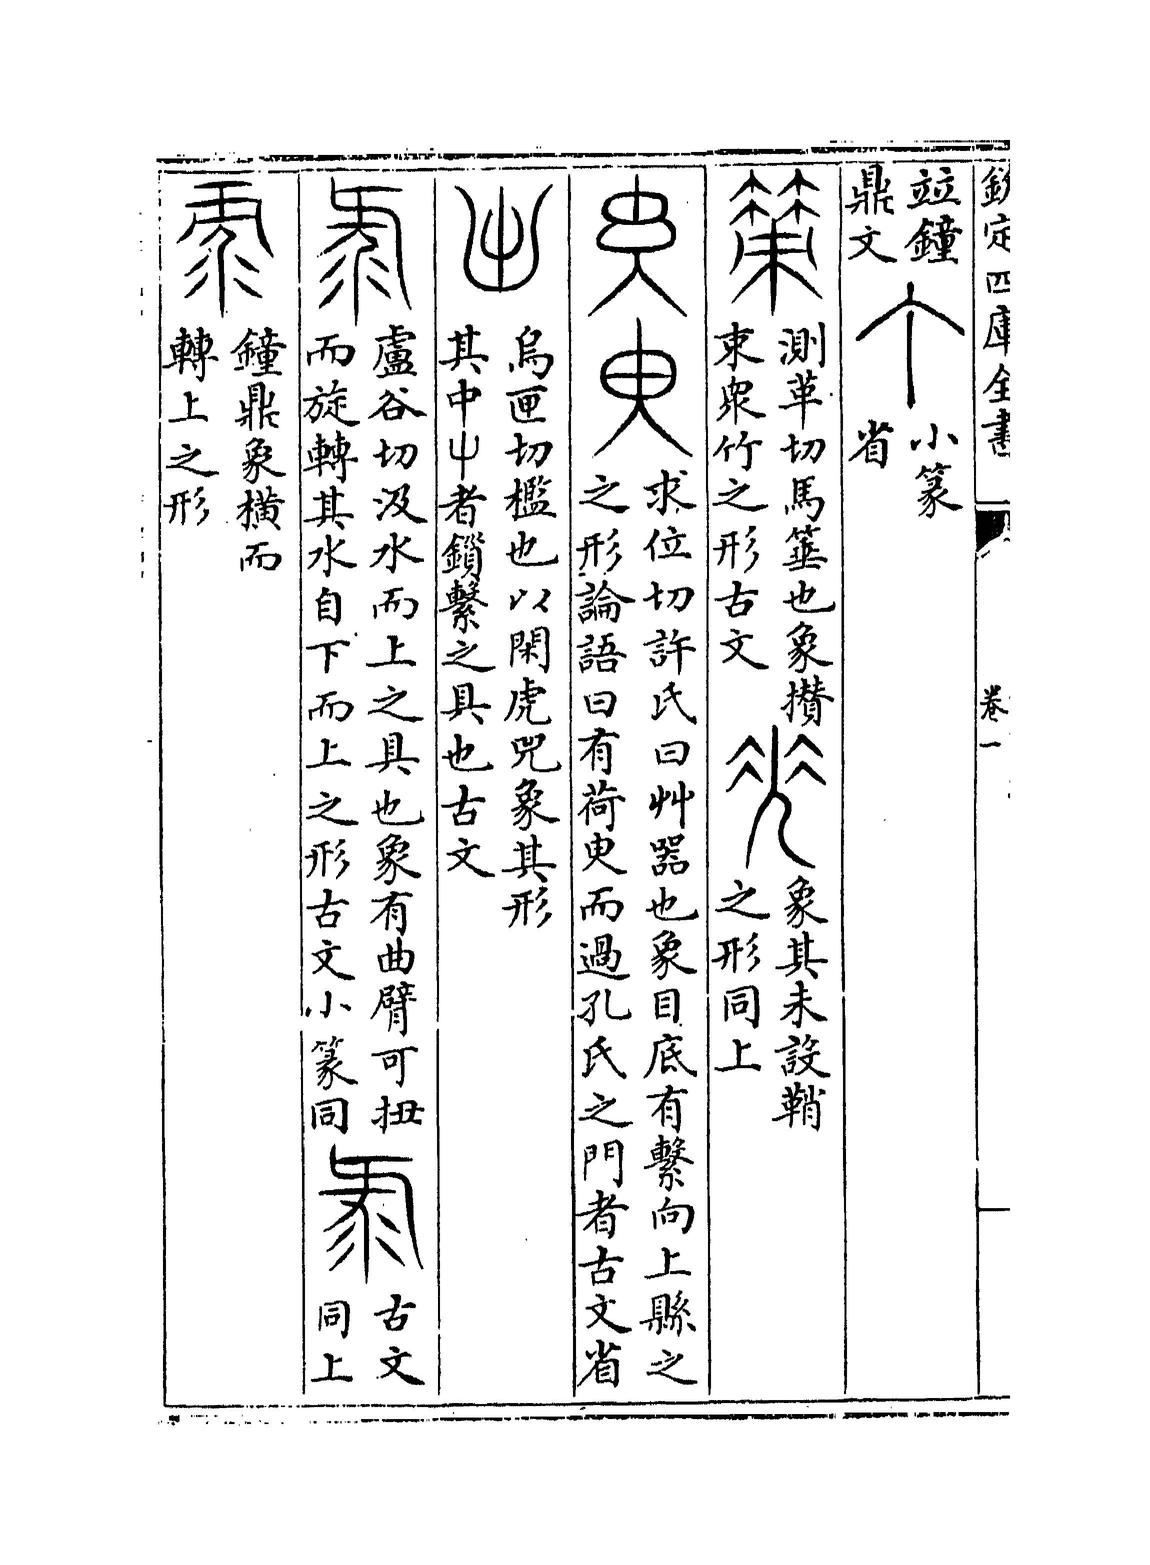 欽定四庫全書
卷一
竝鐘
鼎文
小篆
省
測革切馬箠也象攢
束衆竹之形古文
象其未設鞘
之形同上
求位切許氏曰艸器也象目底有繫向上縣之
之形論語曰有荷臾而過孔氏之門者古文省
烏匣切檻也以閑虎兕象其形
其中屮者鎖繫之具也古文
盧谷切汲水而上之具也象有曲臂可扭
而旋轉其水自下而上之形古文小篆同
古文
同上
鐘鼎象橫而
轉上之形